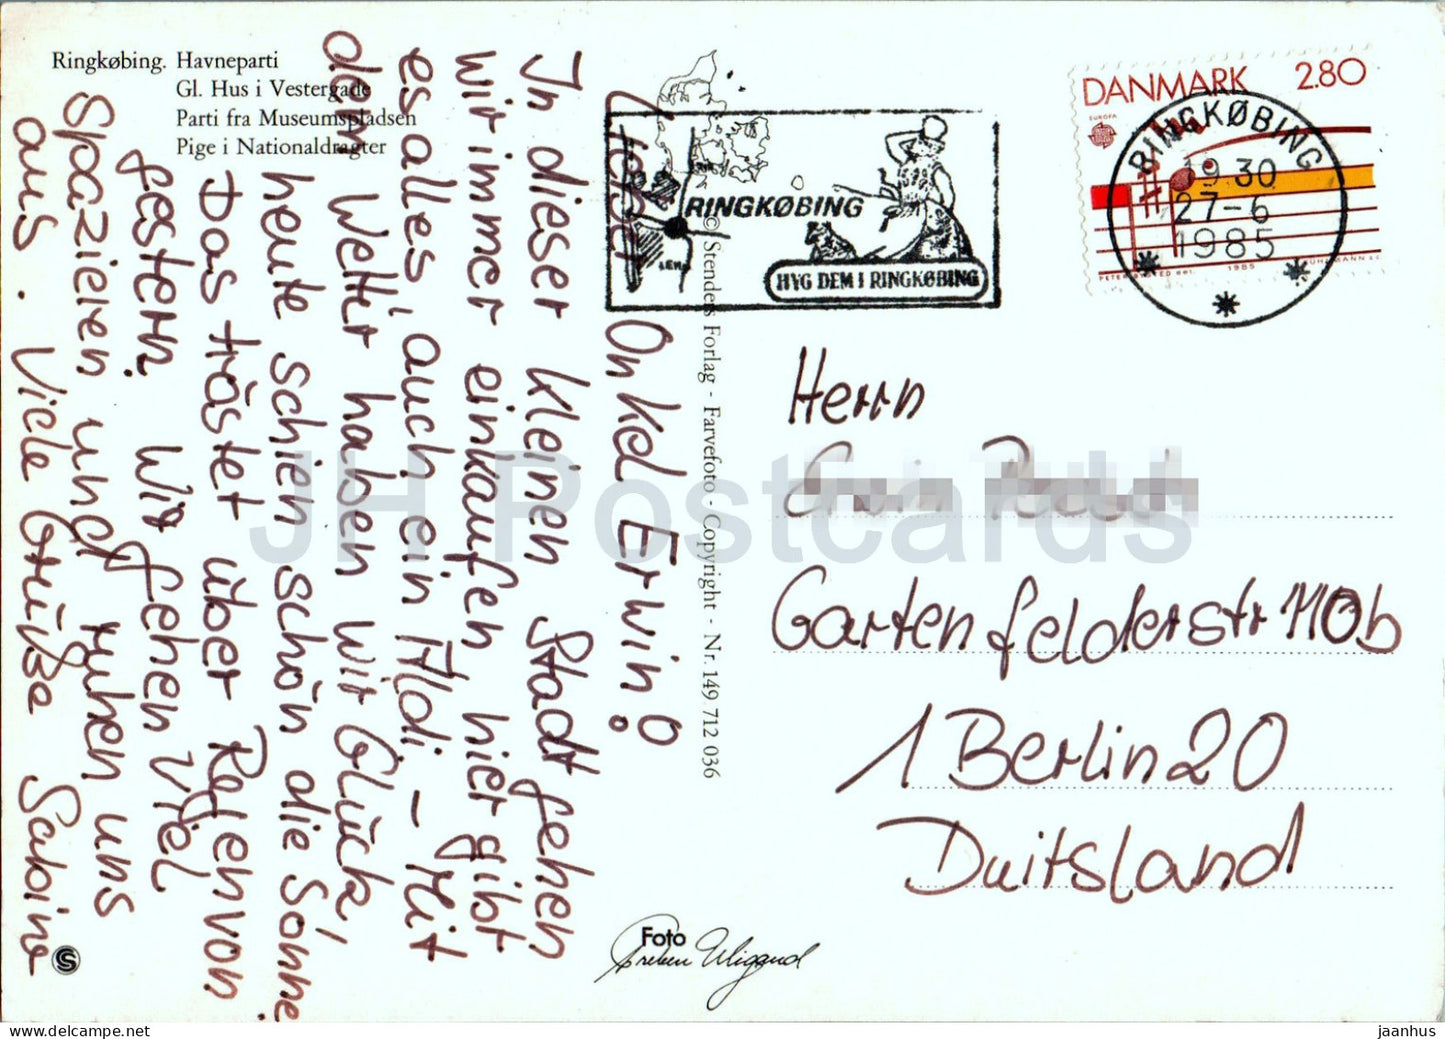 Ringkøbing. Havneparti
Gl. Hus i Vestergade
Parti fra Museumspladsen
Pige i Nationaldragter
Lieber Onkel Erwin!
In dieser kleinen Stadt gehen
wir immer einkaufen, hier gibt
es alles, auch ein Aldi, – Mit
dem Wetter haben wir Glück,
heute schien schön die Sonne.
Das tröstet über Regen von
gestern. Wir gehen viel
spazieren und ruhen uns
aus. Viele Grüße Sabine
© Stenders Forlag - Farvefoto - Copyright - Nr. 149 712 036
RINGKØBING
HYG DEM I RINGKØBING
DANMARK 2.80
EUROPA
1985
RINGKØBING
19 30
27-6
1985
Herrn
Gartenfelderstr 110b
1 Berlin 20
Duitsland
Foto
Preben Wigand
S
JH Postcards
www.delcampe.net
jaanhus